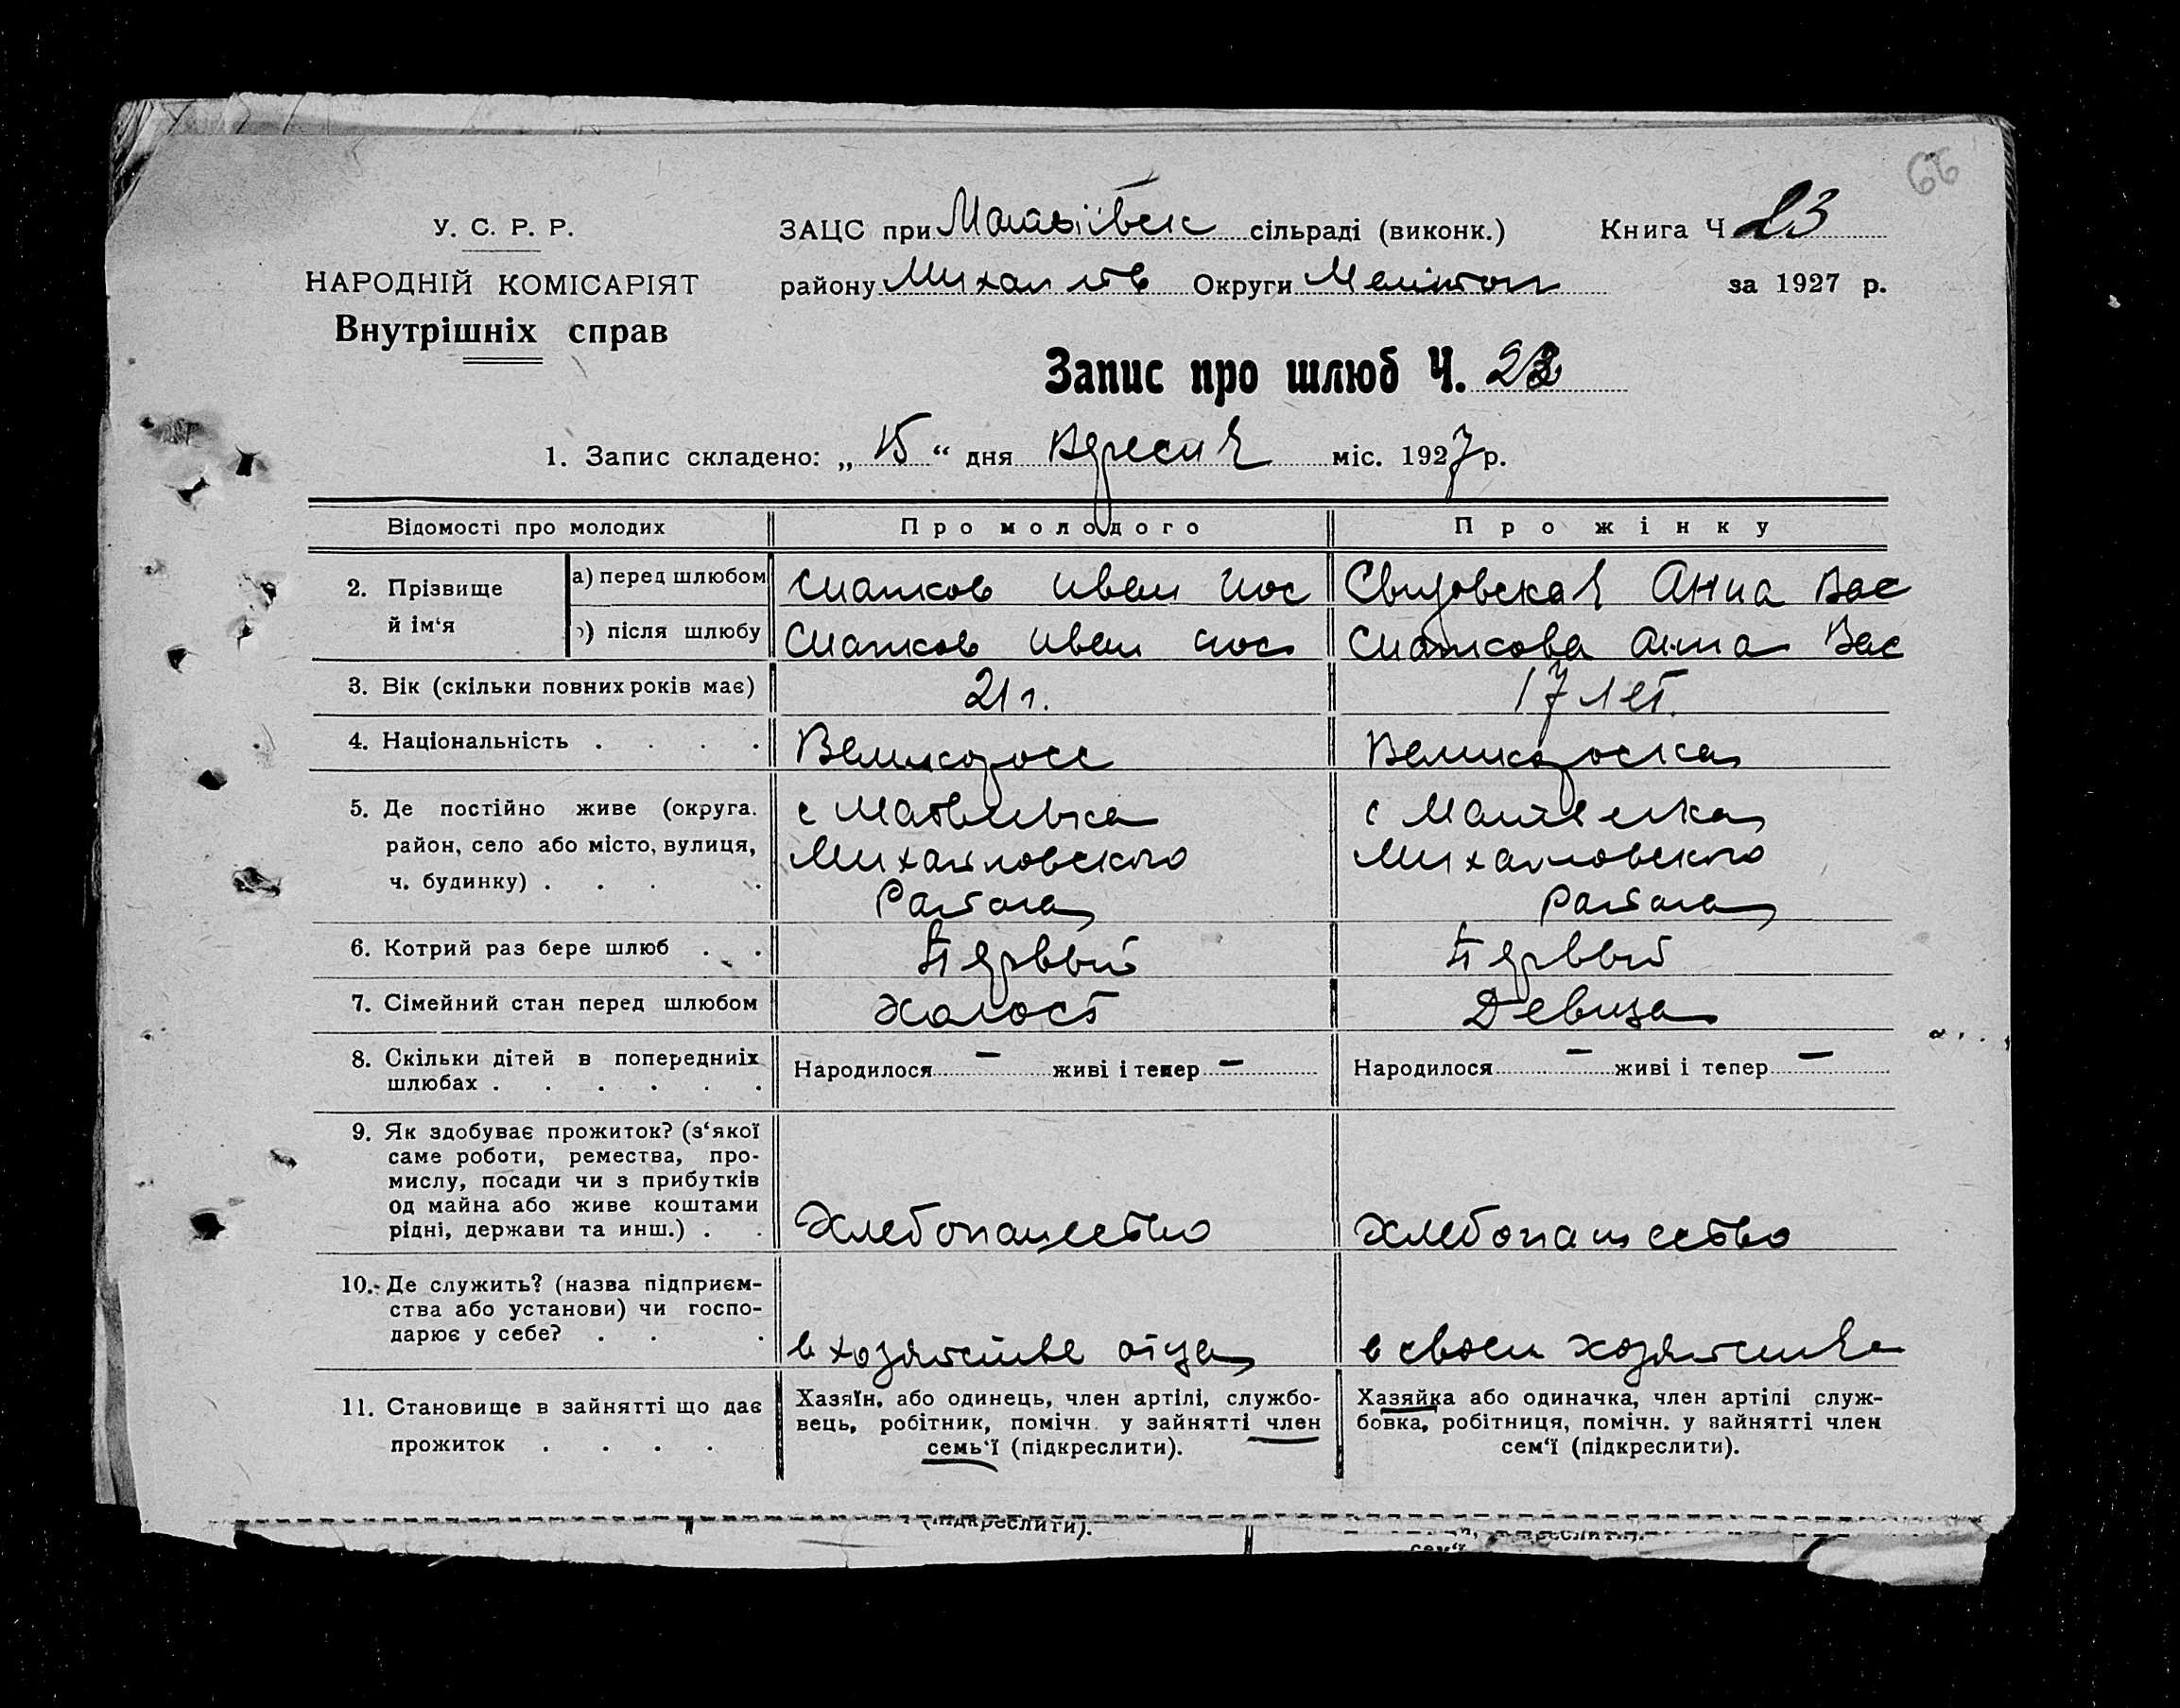 66
У. С. Р. Р.
НАРОДНІЙ КОМІСАРІЯТ
Внутрішніх справ
ЗАЦС при Матвіївск сільраді (виконк.)
Книга Ч 23
району Михайлів Округи Меліитоп
за 1927 р.
Запис про шлюб Ч.
1. Запис складено: „ 15 “ дня Вересня міс. 1927 р.
Відомості про молодих Про молодого Про жінку
2. Прізвище й ім‘я
а) перед шлюбом Иван Иос Анна Вас
) після шлюбу Иван Иос Анна Вас
3. Вік (скільки повних років має) 21 г. 17 лет.
4. Національність . . . . Великоросс Великоросска
5. Де постійно живе (округа. район, село або місто, вулиця, ч. будинку) . . . .
с Матвеевка
Михайловского
Района
с Матвеевка
Михайловского
Района
6. Котрий раз бере шлюб . . Первый Первый
7. Сімейний стан перед шлюбом Холост Девица
8. Скільки дітей в попередниіх шлюбах . . . . . .
Народилося – живі і тепер –
Народилося – живі і тепер –
9. Як здобуває прожиток? (з‘якої
саме роботи, ремества, про-
мислу, посади чи з прибутків
од майна або живе коштами
рідні, держави та инш.) . .
Хлебопашество
Хлебопашество
10. Де служить? (назва підприєм-
ства або установи) чи госпо-
дарює у себе? . . .
в хозяйстве отца
в своем хозяйстве
11. Становище в зайнятті що дає
прожиток . . . .
Хазяїн, або одинець, член артілі, службо-
вець, робітник, помічн. у зайнятті член
семь‘ї (підкреслити).
Хазяйка або одиначка, член артілі служ-
бовка, робітниця, помічн. у зайнятті член
сем‘ї (підкреслити).
(підкреслити).